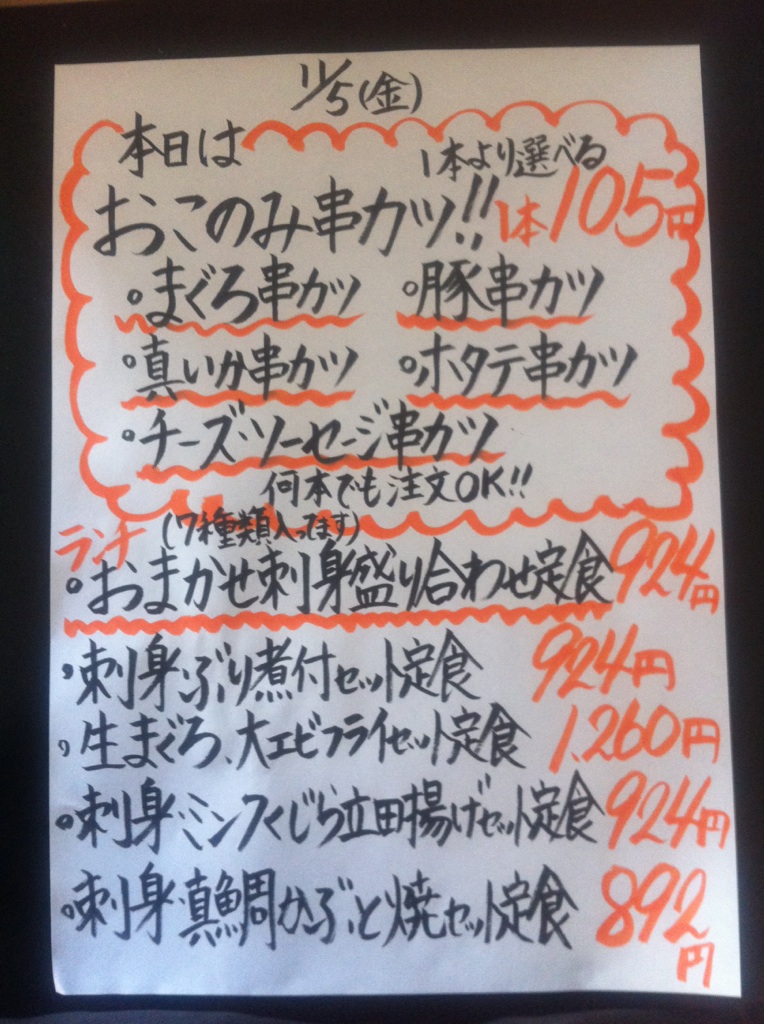 11/5(金)
本日は
1本より選べる
おこのみ串カツ!! 1本105円
○まぐろ串カツ ○豚串カツ
○真いか串カツ ○ホタテ串カツ
○チーズ・ソーセージ串カツ
何本でも注文OK!!
ランチ (7種類入ってます)
○おまかせ刺身盛り合わせ定食 924円
○刺身・ぶり煮付セット定食 924円
○生まぐろ、大エビフライセット定食 1,260円
○刺身・ミンクくじら立田揚げセット定食 924円
○刺身・真鯛かぶと焼セット定食 892円